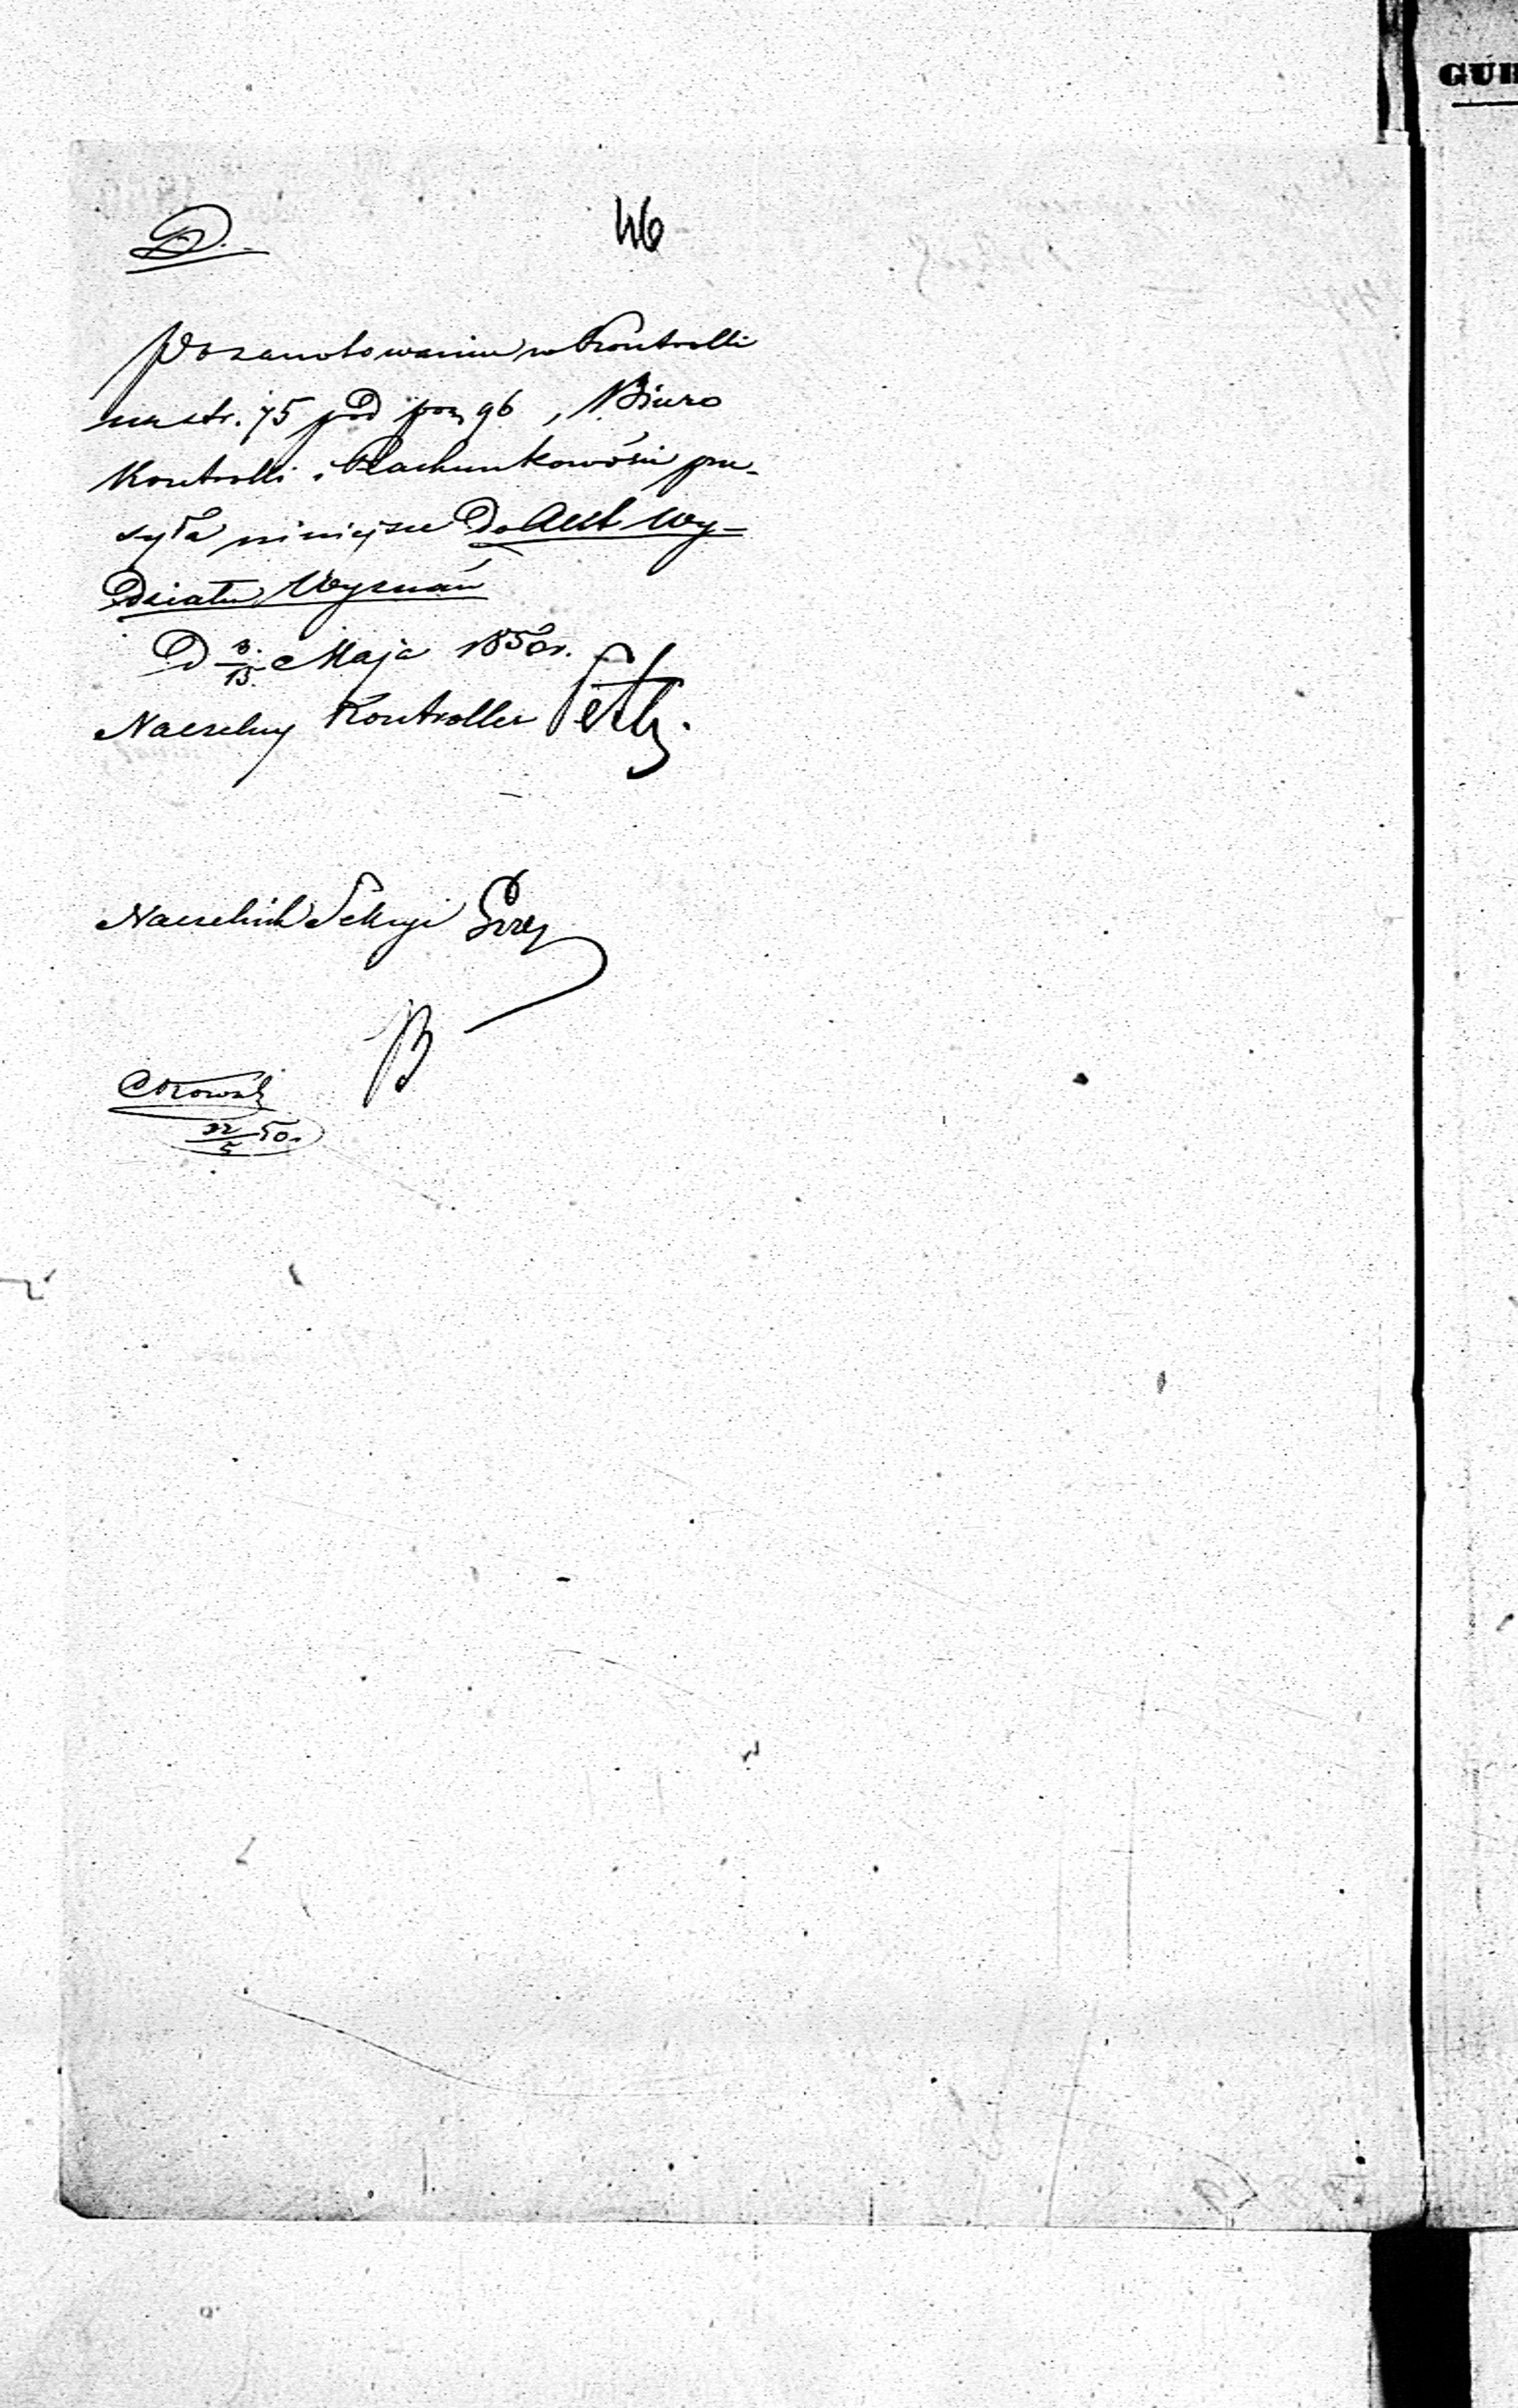 D.
46
Po zanotowaniu w Kontrolli
na str. 75 pod poz 96, Biuro
Kontrolli i Rachunkowości prze-
syła niniejsze do Akt Wy-
działu Wyznań
D 3/15 Maja 1850 r.
Naczelny Kontroller
Naczelnik Sekcyi
22/5 50.
GUB